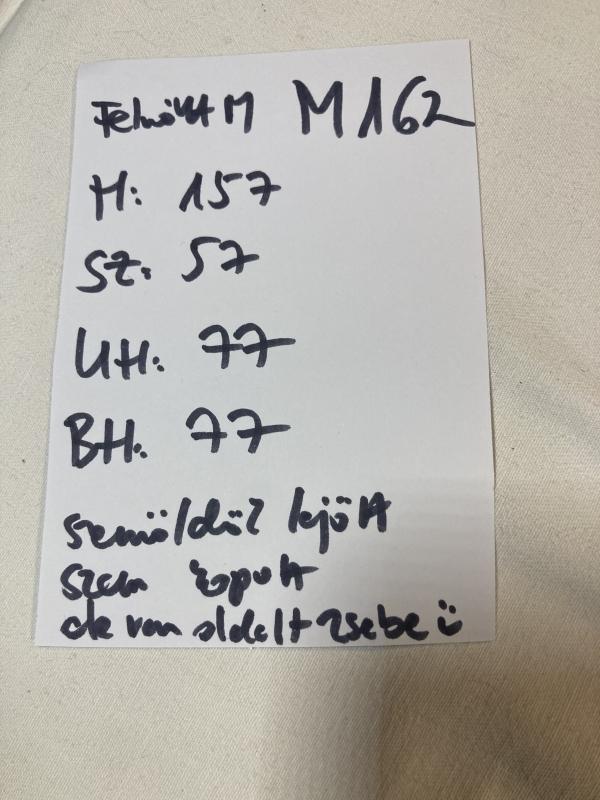 Felnőtt M M162
H: 157
SZ: 57
UH: 77
BH: 77
szemöldök lejött
szem kopott
de van oldalt zsebe ü